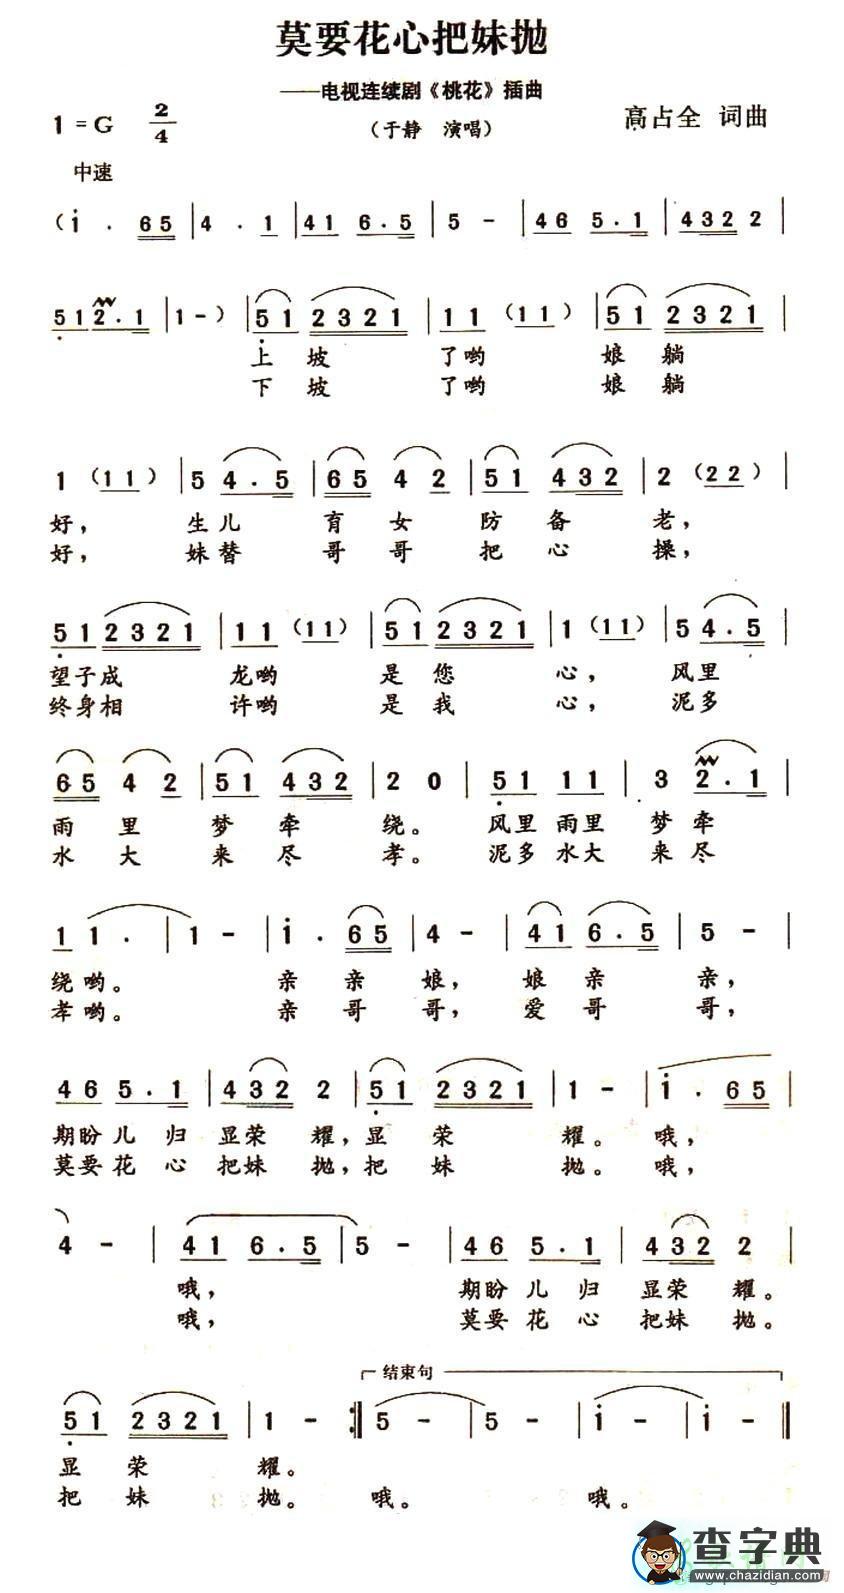 莫要花心把妹抛
——电视连续剧《桃花》插曲
1=G 2/4 （于静 演唱） 高占全 词曲
中速
（i · 65 | 4 · 1 | 41 6·5 | 5 - | 46 5·1 | 432 2 |
51 2·1 | 1 - ） | 51 2321 | 11 （11） | 51 2321 |
上坡 了哟 娘躺
下坡 了哟 娘躺
1 （11） | 5 4·5 | 65 4 2 | 51 432 | 2 （22） |
好， 生儿 育女 防备 老，
好， 妹替 哥哥 把心 操，
51 2321 | 11 （11） | 51 2321 | 1 （11） | 5 4·5 |
望子成 龙哟 是您 心， 风里
终身相 许哟 是我 心， 泥多
65 4 2 | 51 432 | 2 0 | 51 11 | 3 2·1 |
雨里 梦牵 绕。 风里雨里 梦牵
水大 来尽 孝。 泥多水大 来尽
1 1· | 1 - | i · 65 | 4 - | 41 6·5 | 5 - |
绕哟。 亲亲 娘， 娘亲 亲，
孝哟。 亲哥 哥， 爱哥 哥，
46 5·1 | 432 2 | 51 2321 | 1 - | i · 65 |
期盼儿归 显荣 耀，显荣 耀。 哦，
莫要花心 把妹 抛，把妹 抛。 哦，
4 - | 41 6·5 | 5 - | 46 5·1 | 432 2 |
哦， 期盼儿归 显荣 耀。
哦， 莫要花心 把妹 抛。
结束句
51 2321 | 1 - :‖ 5 - | 5 - | i - | i - ‖
显荣 耀。
把妹 抛。 哦。 哦。
查字典
www.chazidian.com